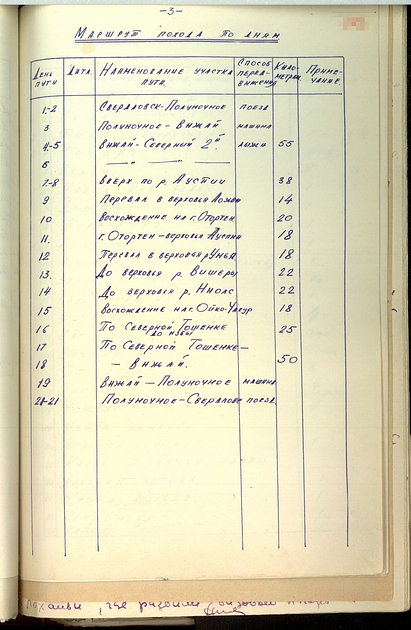 -3-
Маршрут похода по дням
День пути Дата. Наименование участка пути. Способ передвижения Километраж. Примечание.
1-2 Свердловск-Полуночное поезд
3 Полуночное - Вижай машина
4-5 Вижай-Северный 2й. лыжи 55
6 —〃— —〃— ——
7-8 Вверх по р. Ауспии 38
9 Перевал в верховья Лозьвы 14
10 Восхождение на г. Отортен 20
11. г. Отортен-верховья Ауспии 18
12 Перевал в верховья р. Унья 18
13. До верховья р. Вишеры 22
14 До верховья р. Ниолс 22
15 Восхождение на г. Ойко-Чакур 18
16 По Северной Тошемке до избы 25
17 По Северной Тошемке-
18 - Вижай. 50
19 Вижай-Полуночное машина
20-21 Полуночное-Свердловск поезд.